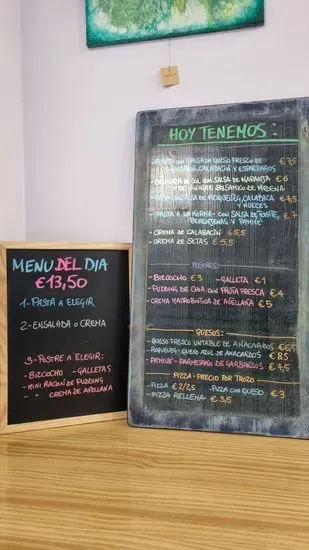 MENU DEL DIA
€13,50
1-PASTA A ELEGIR
2-ENSALADA O CREMA
3-POSTRE A ELEGIR:
-BIZCOCHO -GALLETAS
-MINI RACION DE PUDDING
- " CREMA DE AVELLANA
HOY TENEMOS:
CON SALSA DE QUESO FRESCO DE €7,5
CALABACIN Y ESPARRAGOS
DE COL CON SALSA DE NARANJA €6
Y VINAGRE BALSAMICO DE MODENA
SALSA DE ROQUEFLEG, CALABAZA €7,5
Y NUECES
-PASTA A LA NORMA-CON SALSA DE TOMATE, €7
BERENJENAS Y
-CREMA DE CALABACIN €5,5
-CREMA DE SETAS €5,5
POSTRES:
-BIZCOCHO €3 -GALLETA €1
-PUDDING DE CHIA CON FRUTA FRESCA €4
-CREMA MACROBIOTICA DE AVELLANA €5
QUESOS:
-QUESO FRESCO UNTABLE DE ANACARDOS €6,5
-ROQUEFLEG-QUESO AZUL DE ANACARDOS €8,5
-PARMESANO DE GARBANZOS €7,5
PIZZA-PRECIO POR TROZO
-PIZZA €2/2,5 -PIZZA CON QUESO €3
-PIZZA RELLENA €3,5